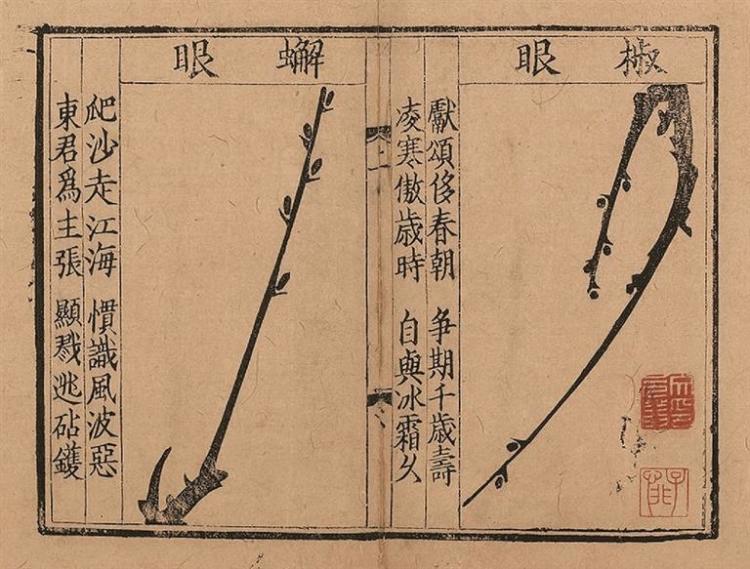 椒眼
獻頌侈春朝 争期千歲壽
凌寒傲歲時 自與冰霜久
上一
蠏眼
爬沙走江海 慣識風波惡
東君爲主張 顯戮逃砧鑊